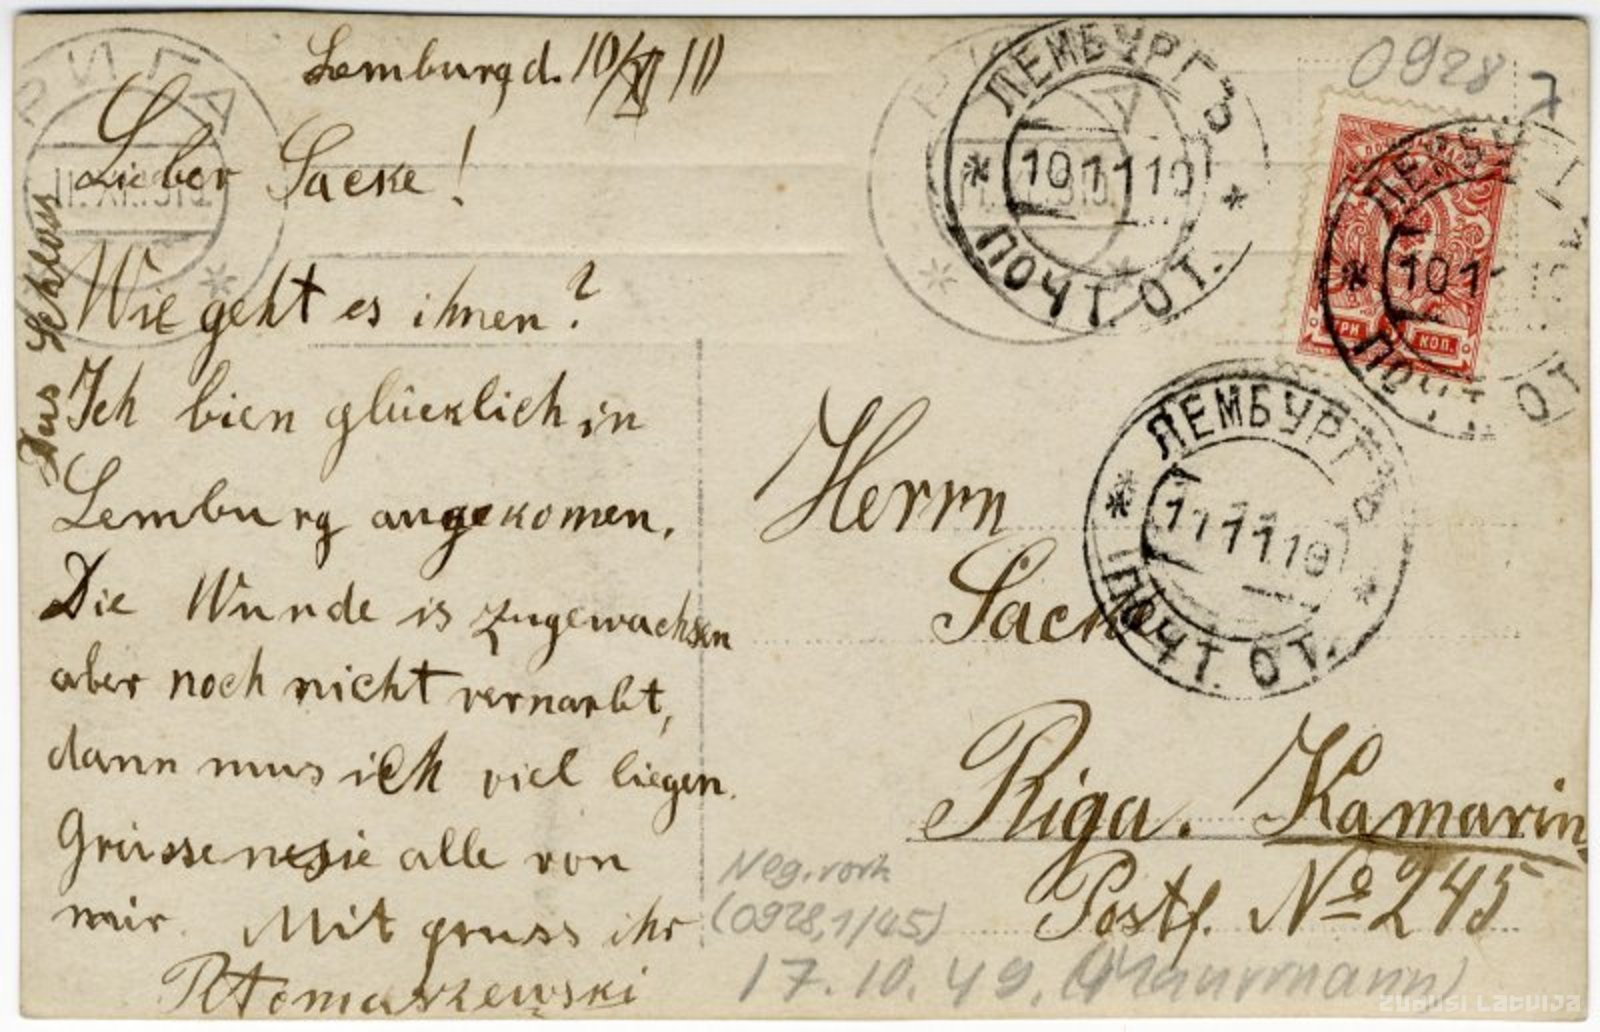 Lemburg d. 10/XI 10
Lieber Sacke!
Wie geht es ihnen?
Ich bien glücklich in
Lemburg angekomen.
Die Wunde is zugewachsen
aber noch nicht vernarbt,
dann mus ich viel liegen.
Grüssen sie alle von
mir. Mit gruss ihr
Tomaszewski
Das Schloss
РИГА
ЛЕМБУРГЪ
10 11 10
ПОЧТ. ОТ.
0928
7
ТРИ КОП.
ЛЕМБУРГЪ
10 1
ПОЧТ. ОТ.
ЛЕМБУРГЪ
11 11 10
ПОЧТ. ОТ.
Herrn
Sacke
Riga. Kamarin
Postf. № 245
Neg. vorh
(0928,1/45)
17.10.49.
ZUDUSI LATVIJA